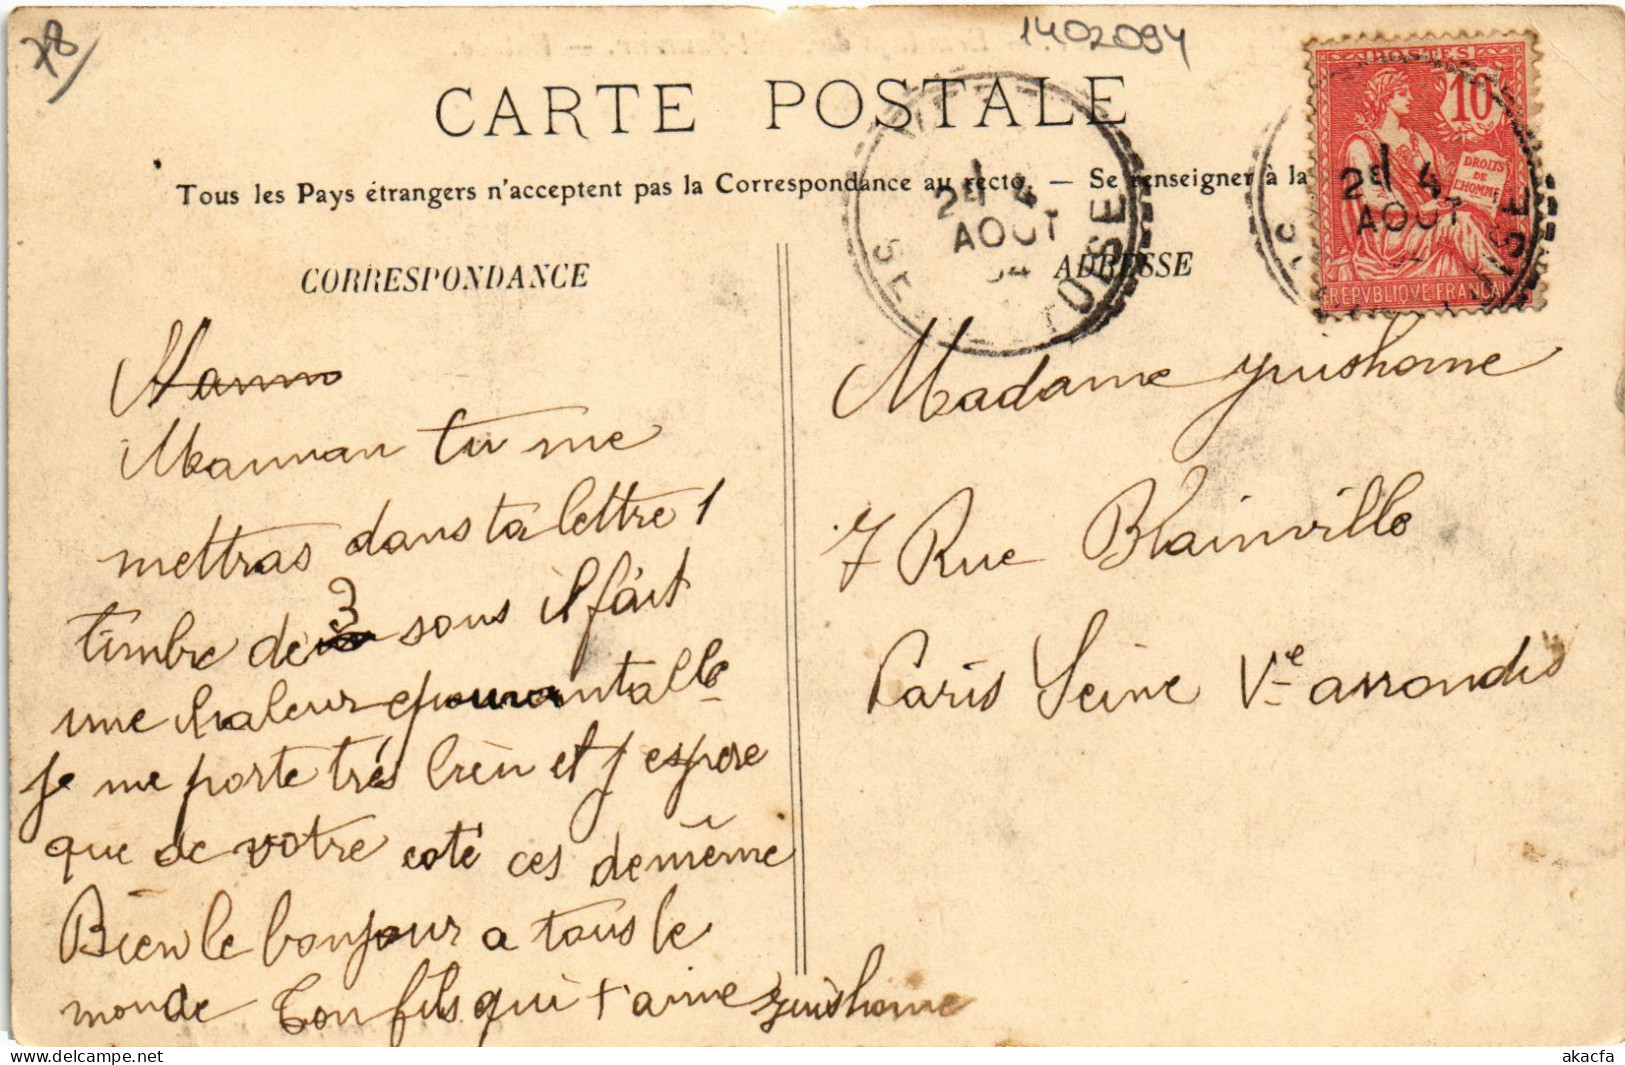 78
1402094
CARTE POSTALE
Tous les Pays étrangers n'acceptent pas la Correspondance au recto. — Se renseigner à la
POSTES
10
DROITS
DE
L'HOMME
REPVBLIQVE FRANÇAI
2E 4
AOUT
04
2E 4
AOUT
CORRESPONDANCE
Maman tu me
mettras dans ta lettre 1
timbre de 3 sous il fait
une chaleur epouvantalble
je me porte très bien et j espere
que de votre coté ces de même
Bien le bonjour a tous le
monde Ton fils qui t'aime
ADRESSE
Madame
7 Rue Blainville
Paris Seine Ve arrondis
akacfa